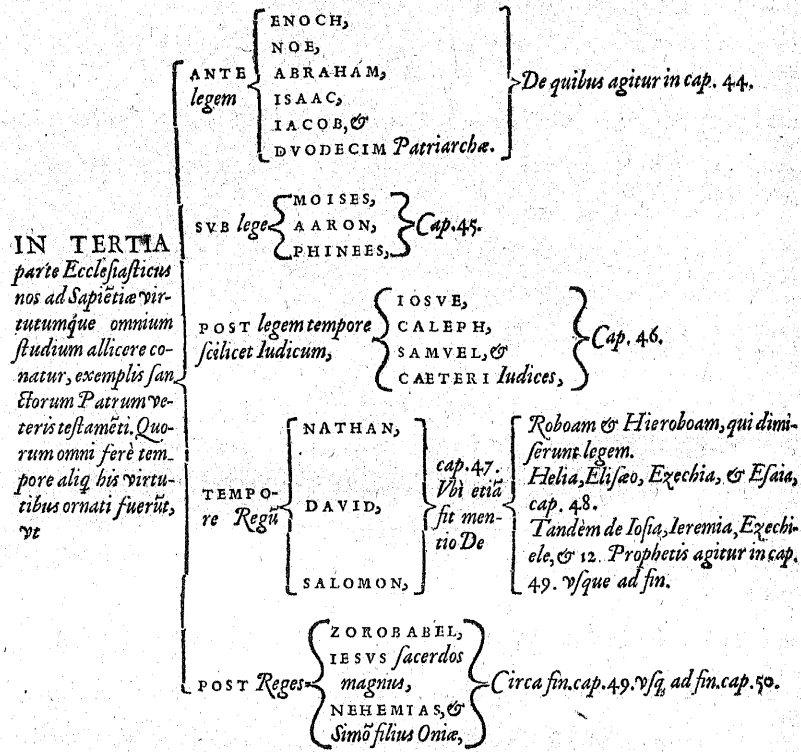 IN TERTIA
parte Ecclesiasticus
nos ad Sapiẽtiæ vir-
tutumq́ue omnium
studium allicere co-
natur, exemplis san
ctorum Patrum ve-
teris testamẽti. Quo-
rum omni ferè tem-
pore aliq his virtu-
tibus ornati fuerũt,
vt
ANTE
legem
ENOCH,
NOE,
ABRAHAM,
ISAAC,
IACOB, &
DVODECIM Patriarchæ.
De quibus agitur in cap. 44.
SVB lege
MOISES,
AARON,
PHINEES,
Cap. 45.
POST legem tempore
scilicet Iudicum,
IOSVE,
CALEPH,
SAMVEL, &
CAETERI Iudices,
Cap. 46.
TEMPO-
re Regũ
NATHAN,
DAVID,
SALOMON,
cap. 47.
Vbi etiã
fit men-
tio De
Roboam & Hieroboam, qui dimi-
serunt legem.
Helia, Elisæo, Ezechia, & Esaia,
cap. 48.
Tandem de Iosia, Ieremia, Ezechi-
ele, & 12. Prophetis agitur in cap.
49. vsque ad fin.
POST Reges
ZOROBABEL,
IESVS sacerdos
magnus,
NEHEMIAS, &
Simõ filius Oniæ,
Circa fin. cap. 49. vsq; ad fin. cap. 50.